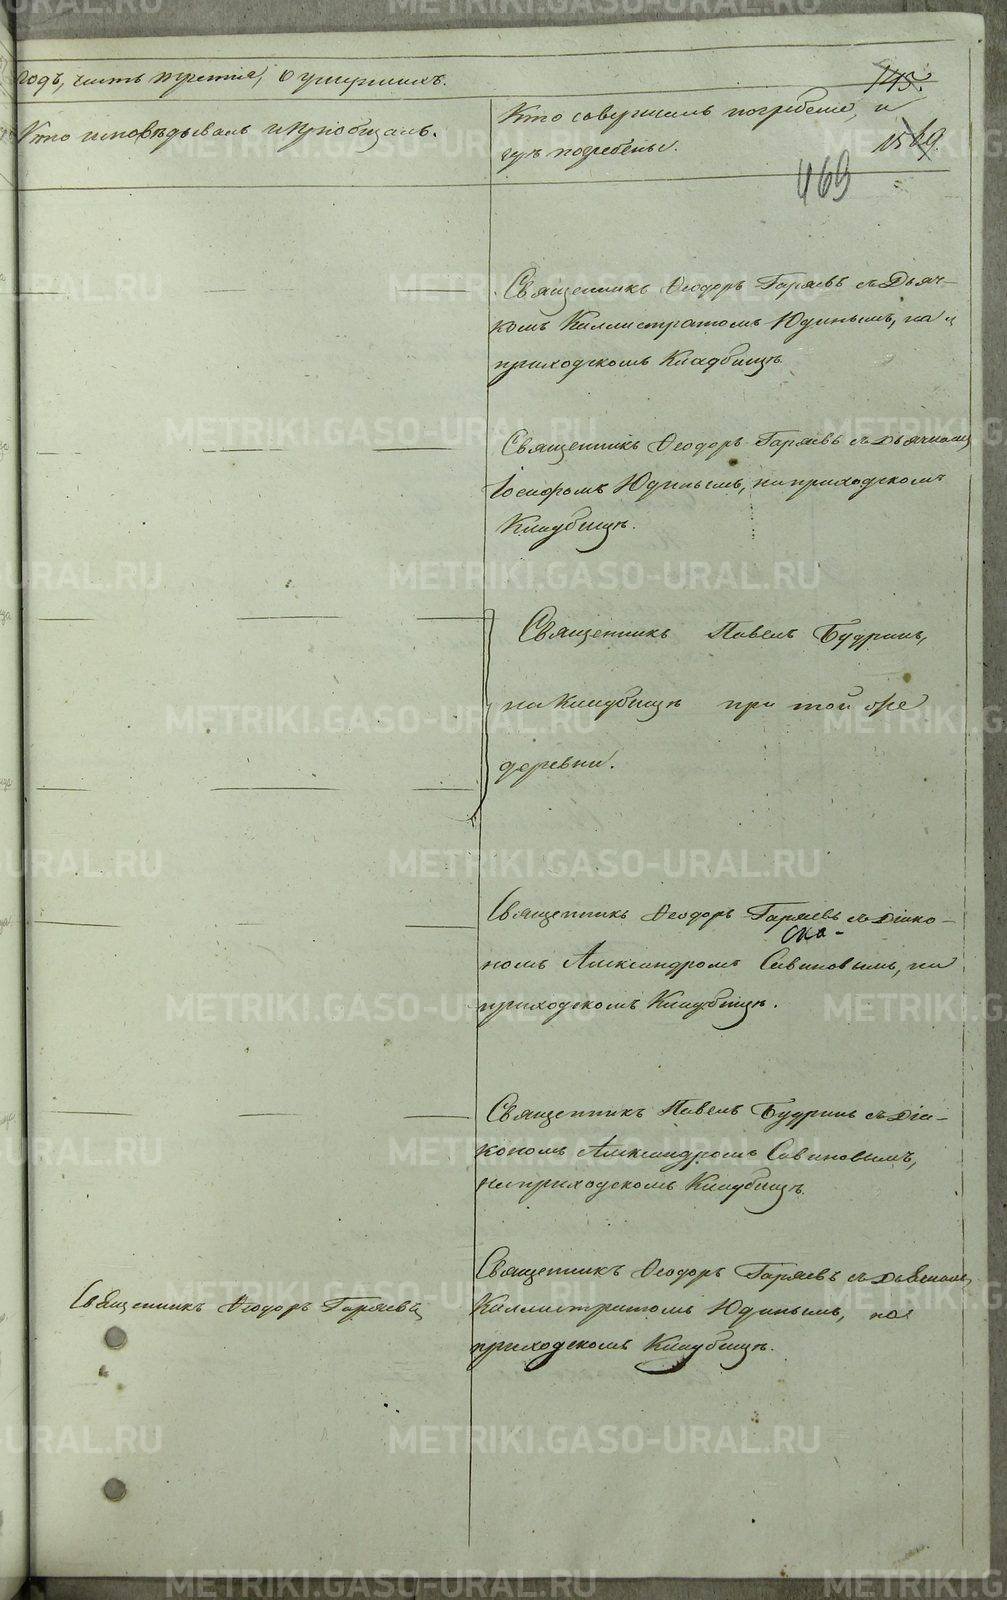 годъ, часть третія, о умершихъ.
145.
Кто исповѣдывалъ и пріобщалъ.
Кто совершалъ погребеніе, и
гдѣ погребены.
469
Священникъ Ѳеодоръ Гаряевъ съ Дьяч-
комъ Каллистратомъ Юдинымъ, на
приходскомъ Кладбищѣ.
Священникъ Ѳеодоръ Гаряевъ съ Дьячкомъ
Іосифомъ Юдинымъ, на приходскомъ
Кладбищѣ.
Священникъ Павелъ Будринъ,
на Кладбищѣ при той же
деревни.
Священникъ Ѳеодоръ Гаряевъ съ Діако-
номъ Александромъ Савиновымъ, на
приходскомъ Кладбищѣ.
Священникъ Павелъ Будринъ съ Діа-
кономъ Александромъ Савиновымъ,
на приходскомъ Кладбищѣ.
Священникъ Ѳеодоръ Гаряевъ
Священникъ Ѳеодоръ Гаряевъ съ Дьячкомъ
Каллистратомъ Юдинымъ, на
приходскомъ Кладбищѣ.
METRIKI.GASO-URAL.RU